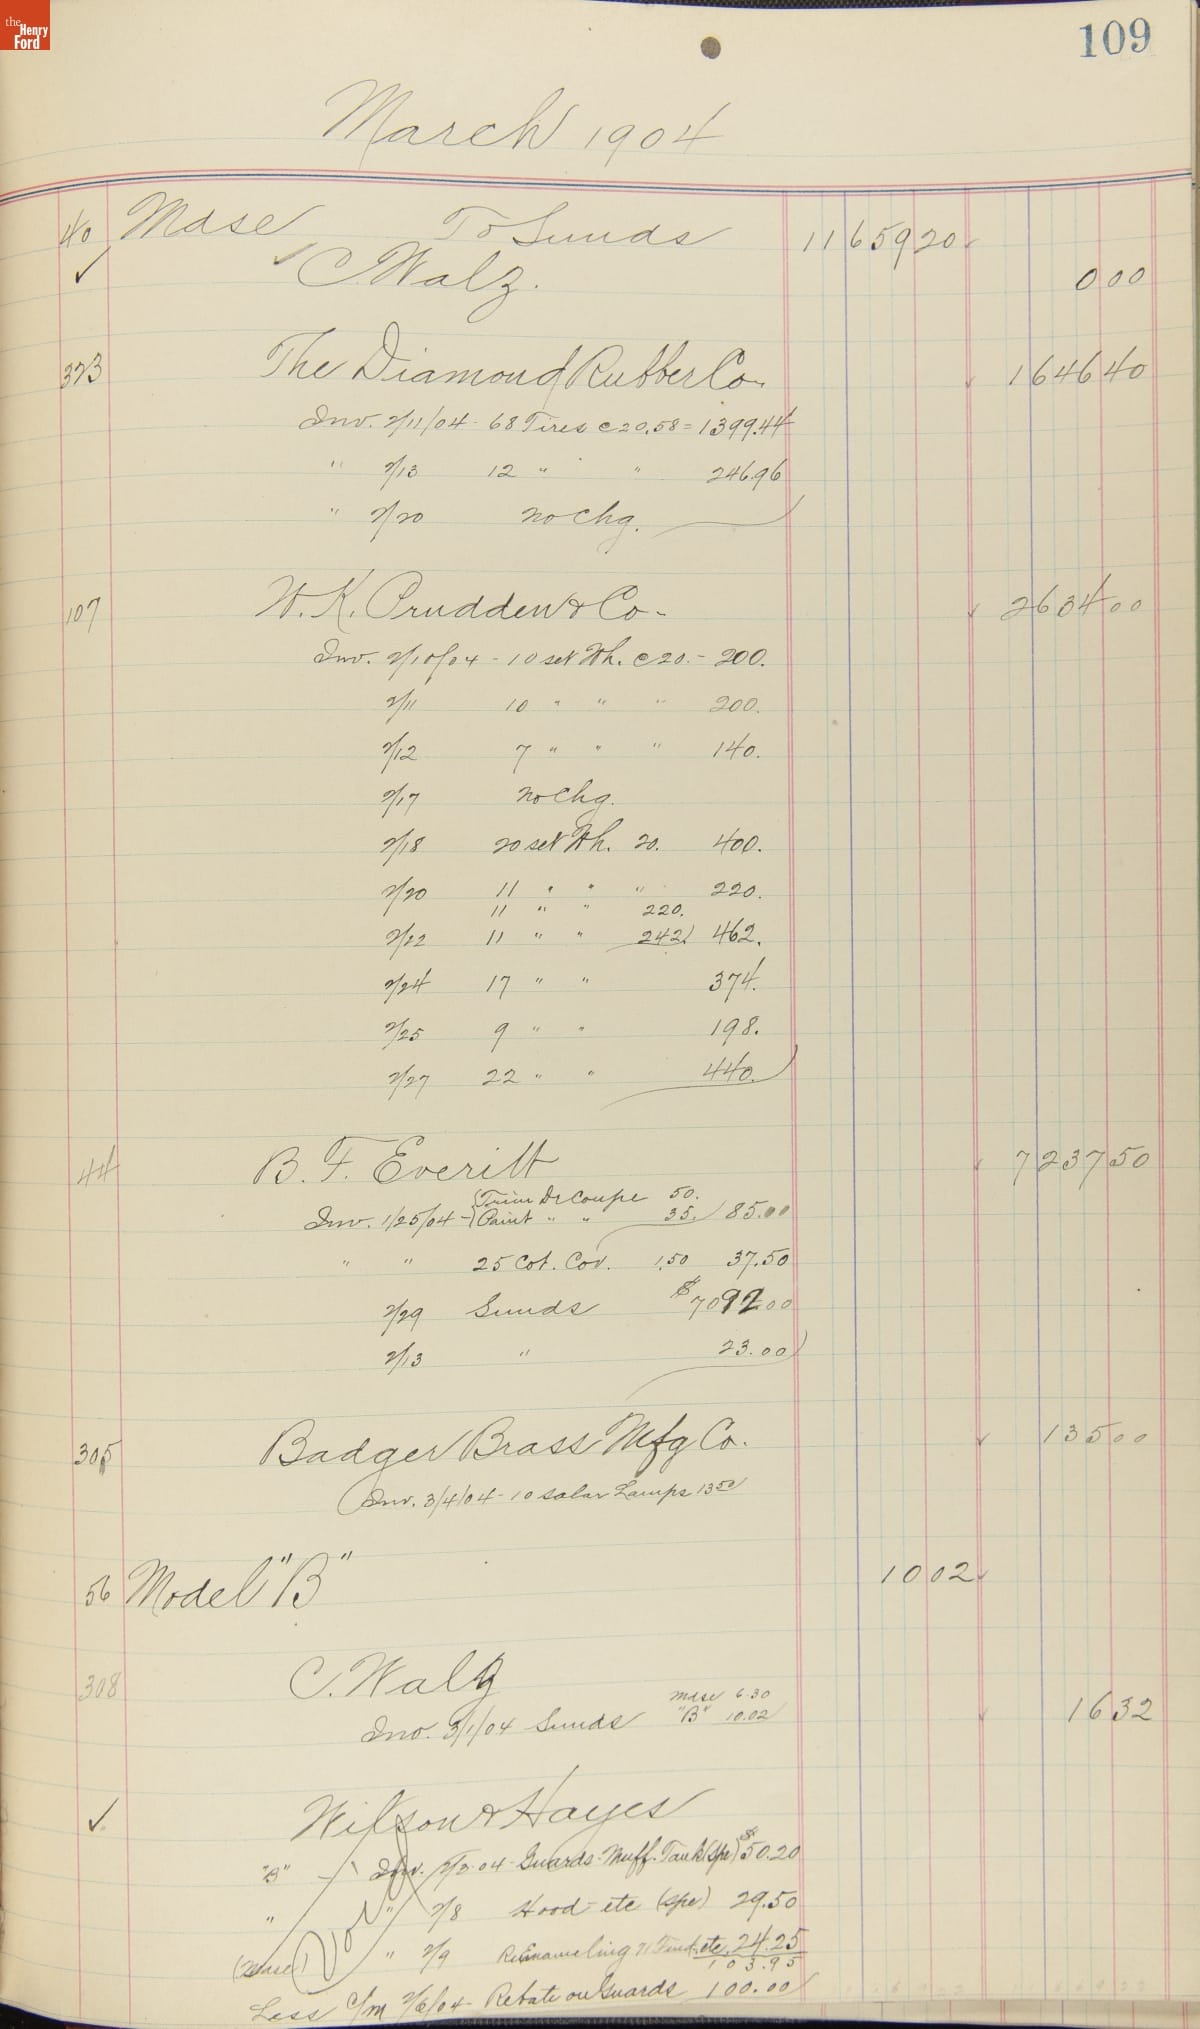 the Henry Ford
109
March 1904
40 Mdse To Sunds 1165920
✓ ✓ C. Walz. 000
323 The Diamond Rubber Co. 164640
Inv. 2/11/04 - 68 Tires @ 20.58 = 1399.44
" 2/13 12 " " 246.96
" 2/20 no chg.
107 W. K. Prudden & Co - 263400
Inv. 2/10/04 - 10 set Wh. @ 20. - 200.
2/11 10 " " " 200.
2/12 7 " " " 140.
2/17 no chg.
2/18 20 set Wh. 20. 400.
2/20 11 " " " 220.
11 " " 220.
2/22 11 " " 242 462.
2/24 17 " " 374.
2/25 9 " " 198.
2/27 22 " " 440.
44 B. F. Everitt 723750
{Trim Dr Coupe 50.
Inv. 1/25/04 - {Paint " " 35. 85.00
" " 25 Cot. Cov. 1.50 37.50
2/29 Sunds $7092.00
2/13 " 23.00
305 Badger Brass Mfg Co. 13500
(Inv. 3/4/04 - 10 Solar Lamps 13 50
56 Model "B" 1002
308 C. Walz
mdse 6.30
Inv. 3/1/04 Sunds "B" 10.02 1632
✓ Wilson & Hayes
"B" Inv. 2/2.04 - Guards - Muff. Tank (spe) $50.20
" " 2/8 Hood - etc (spe) 29.50
(mdse) " 2/9 ReEnameling 71 Fend. etc. 24.25
103.95
Less C/M 2/6/04 - Rebate on Guards 100.00